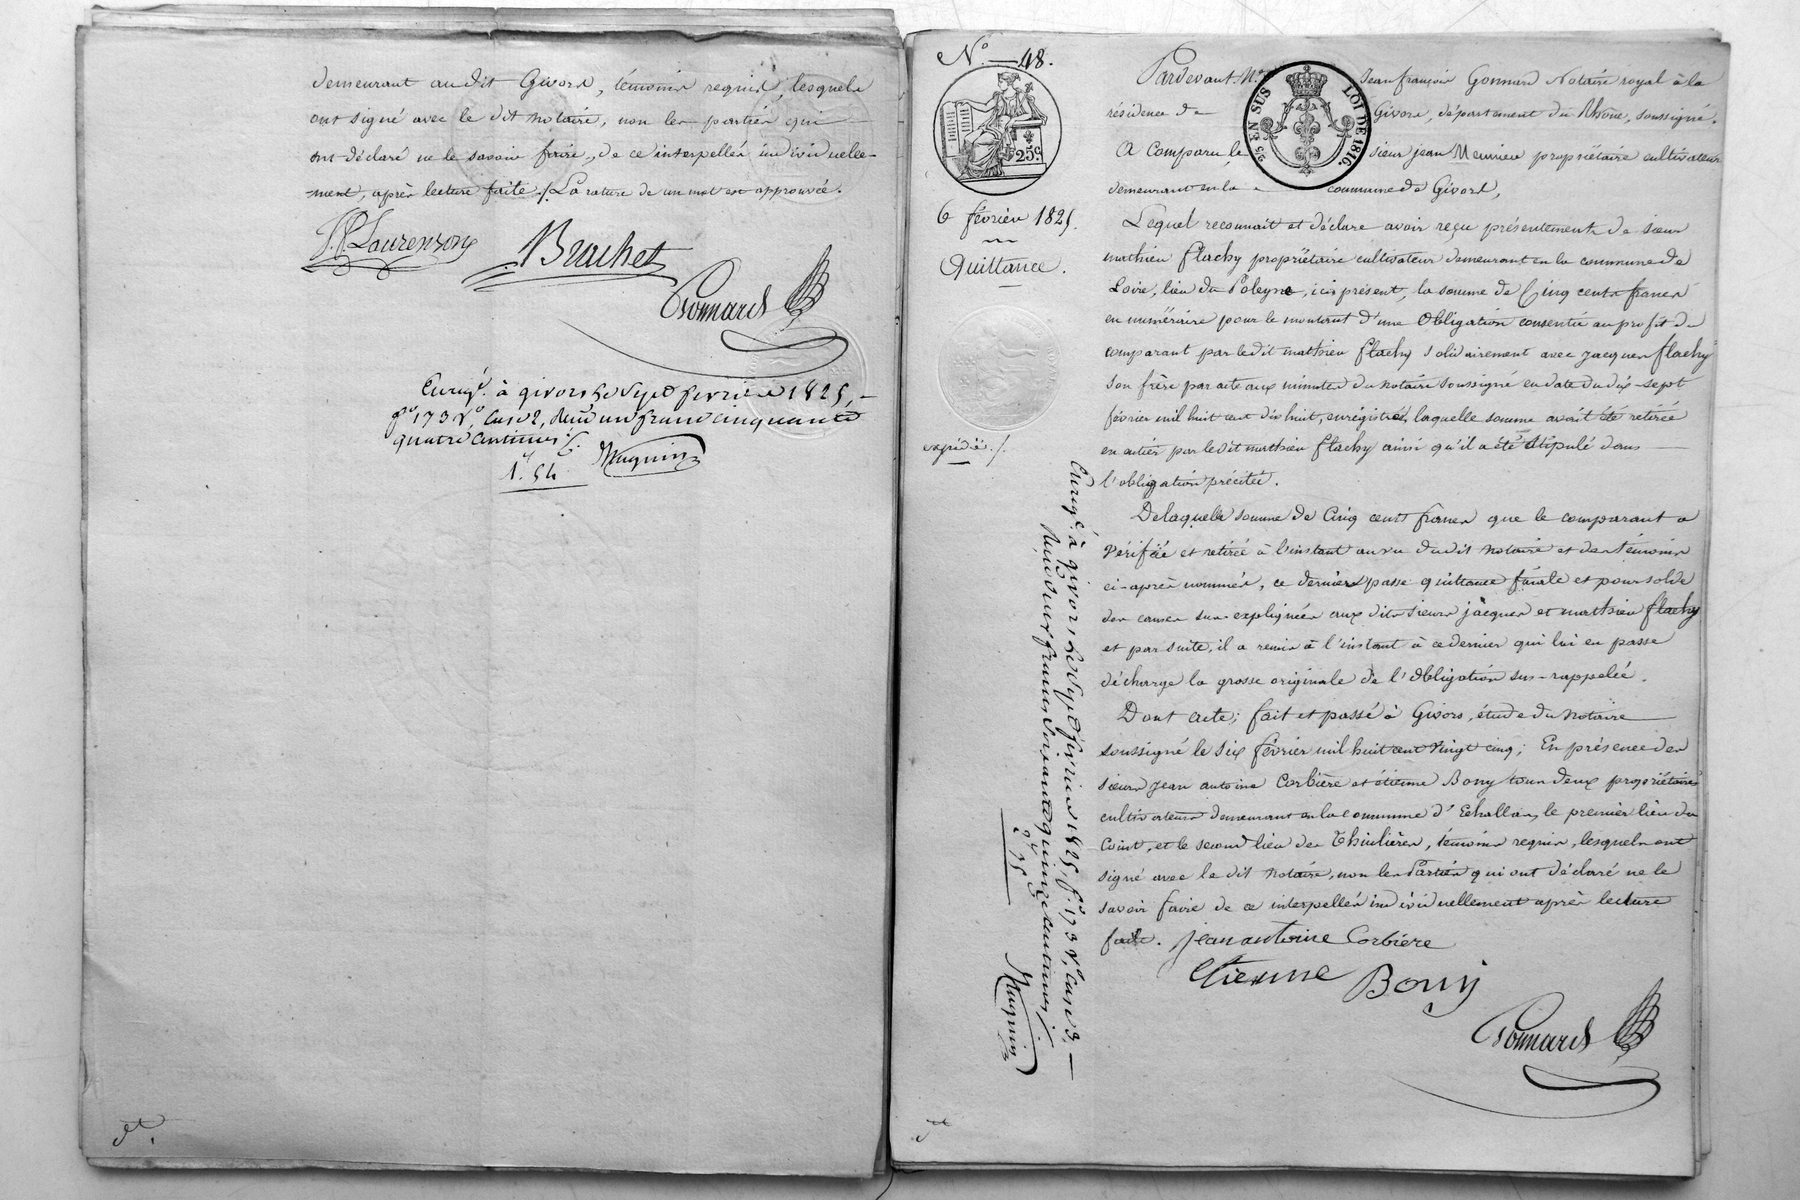 demeurant au dit Givors, témoins requis, lesquels
ont signé avec le dit notaire, non les parties qui
ont déclaré ne le savoir faire, de ce interpellés individuelle-
-ment, après lecture faite ./. La rature de un mot est approuvée.
Laurenson
Brachet
Gonnard
Enregé. à givors le sept fevrier 1825, -
fo. 173 Vo, Case 2, Reçu un franc cinquante
quatre centimes ./.
1f. 54
Muguin
No. 48.
25c.
25 EN SUS
LOI DE 1816.
6 février 1825.
Quittance.
expédié ./.
Pardevant Me. Jean françois Gonnard Notaire royal à la
résidence de Givors, département du Rhône, soussigné.
A Comparu le sieur jean Meunier propriétaire cultivateur
demeurant en la commune de Givors,
Lequel reconnait et déclare avoir reçu présentement de sieur
mathieu flachy propriétaire cultivateur demeurant en la commune de
Loire, lieu du Poleyne, ici présent, la somme de Cinq cents francs
en numéraire pour le montant d'une Obligation consentie au profit du
comparant par ledit mathieu flachy solidairement avec jacques flachy
son frère par acte aux minutes du notaire soussigné en date du dix-sept
février mil huit cent dix huit, enregistrée, laquelle somme avait été retirée
en entier par le dit mathieu flachy ainsi qu'il a été stipulé dans
l'obligation précitée.
De laquelle somme de Cinq cents francs que le comparant a
Vérifiée et retirée à l'instant au vu du dit notaire et des témoins
ci-après nommés, ce dernier passe quittance finale et pour solde
des causes sus-expliquées aux dits sieurs jacques et mathieu flachy
et par suite, il a remis à l'instant à ce dernier qui lui en passe
décharge la grosse originale de l'Obligation sus-rappelée.
Dont acte; fait et passé à Givors, étude du notaire
soussigné le six février mil huit cent vingt cinq; En présence des
sieurs jean antoine Corbière et étienne Bony tous deux propriétaires
cultivateurs demeurant en la commune d'Echallas, le premier lieu du
Coint, et le second lieu des Thiulières, témoins requis, lesquels ont
signé avec le dit notaire, non les Parties qui ont déclaré ne le
savoir faire de ce interpellés individuellement après lecture
faite. jean antoine Corbière
étienne Bony
Gonnard
Enregé. à givors, le sept fevrier 1825, fo. 173 Vo, Case 3, -
Reçu deux francs soixante quinze centimes ./.
2f. 75
Muguin